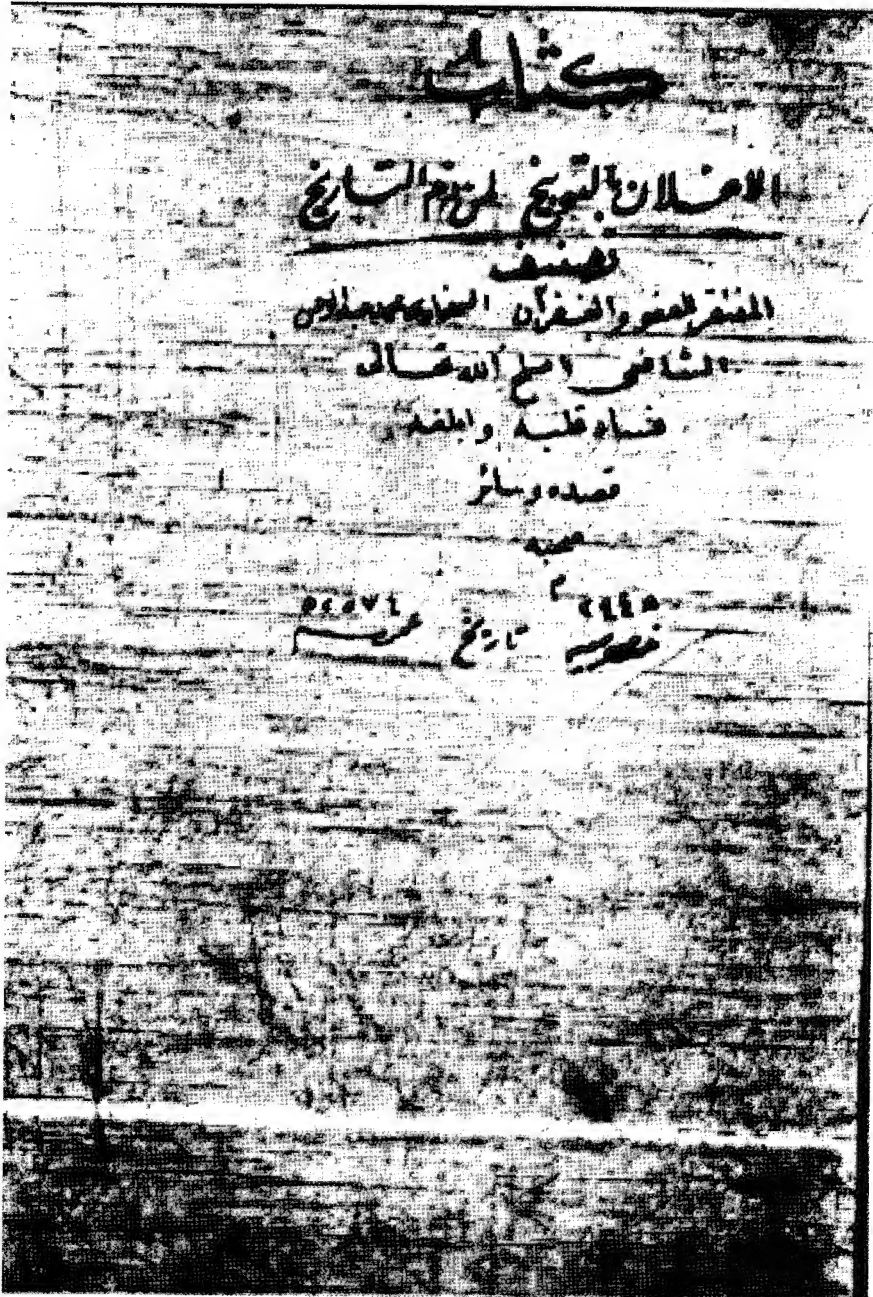 كتاب
الاعلان بالتوبيخ لمن ذم التاريخ
تصنيف
المفتقر للعفو والغفران السخاوى محمد عبدالرحمن
الشافعى اصلح الله تعالى
فساد قلبه وابلغه
قصده وسائر
محبيه
م
٢٤٤٥ ٥٤٥٧٤
خصوصيه تاريخ عموميه